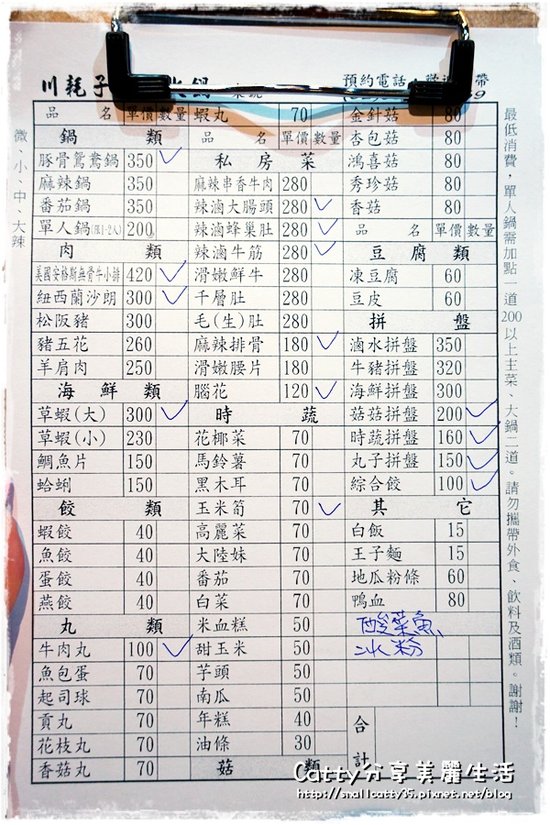 川耗子
預約電話
品 名 單價 數量
鍋 類
豚骨鴛鴦鍋 350
麻辣鍋 350
番茄鍋 350
單人鍋(限1-2人) 200
肉 類
美國安格斯無骨牛小排 420
紐西蘭沙朗 300
松阪豬 300
豬五花 260
羊肩肉 250
海鮮類
草蝦(大) 300
草蝦(小) 230
鯛魚片 150
蛤蜊 150
餃 類
蝦餃 40
魚餃 40
蛋餃 40
燕餃 40
丸 類
牛肉丸 100
魚包蛋 70
起司球 70
貢丸 70
花枝丸 70
香菇丸 70
蝦丸 70
品 名 單價 數量
私房菜
麻辣串香牛肉 280
辣滷大腸頭 280
辣滷蜂巢肚 280
辣滷牛筋 280
滑嫩鮮牛 280
千層肚 280
毛(生)肚 280
麻辣排骨 180
滑嫩腰片 180
腦花 120
時 蔬
花椰菜 70
馬鈴薯 70
黑木耳 70
玉米筍 70
高麗菜 70
大陸妹 70
番茄 70
白菜 70
米血糕 50
甜玉米 50
芋頭 50
南瓜 50
年糕 40
油條 30
菇 類
金針菇 80
杏包菇 80
鴻喜菇 80
秀珍菇 80
香菇 80
品 名 單價 數量
豆腐類
凍豆腐 60
豆皮 60
拼 盤
滷水拼盤 350
牛豬拼盤 320
海鮮拼盤 300
菇菇拼盤 200
時蔬拼盤 160
丸子拼盤 150
綜合餃 100
其 它
白飯 15
王子麵 15
地瓜粉條 60
鴨血 80
酸菜魚
冰粉
合計
微、小、中、大辣
最低消費,單人鍋需加點一道200以上主菜、大鍋二道。請勿攜帶外食、飲料及酒類。謝謝!
Catty分享美麗生活
http://smallcatty35.pixnet.net/blog